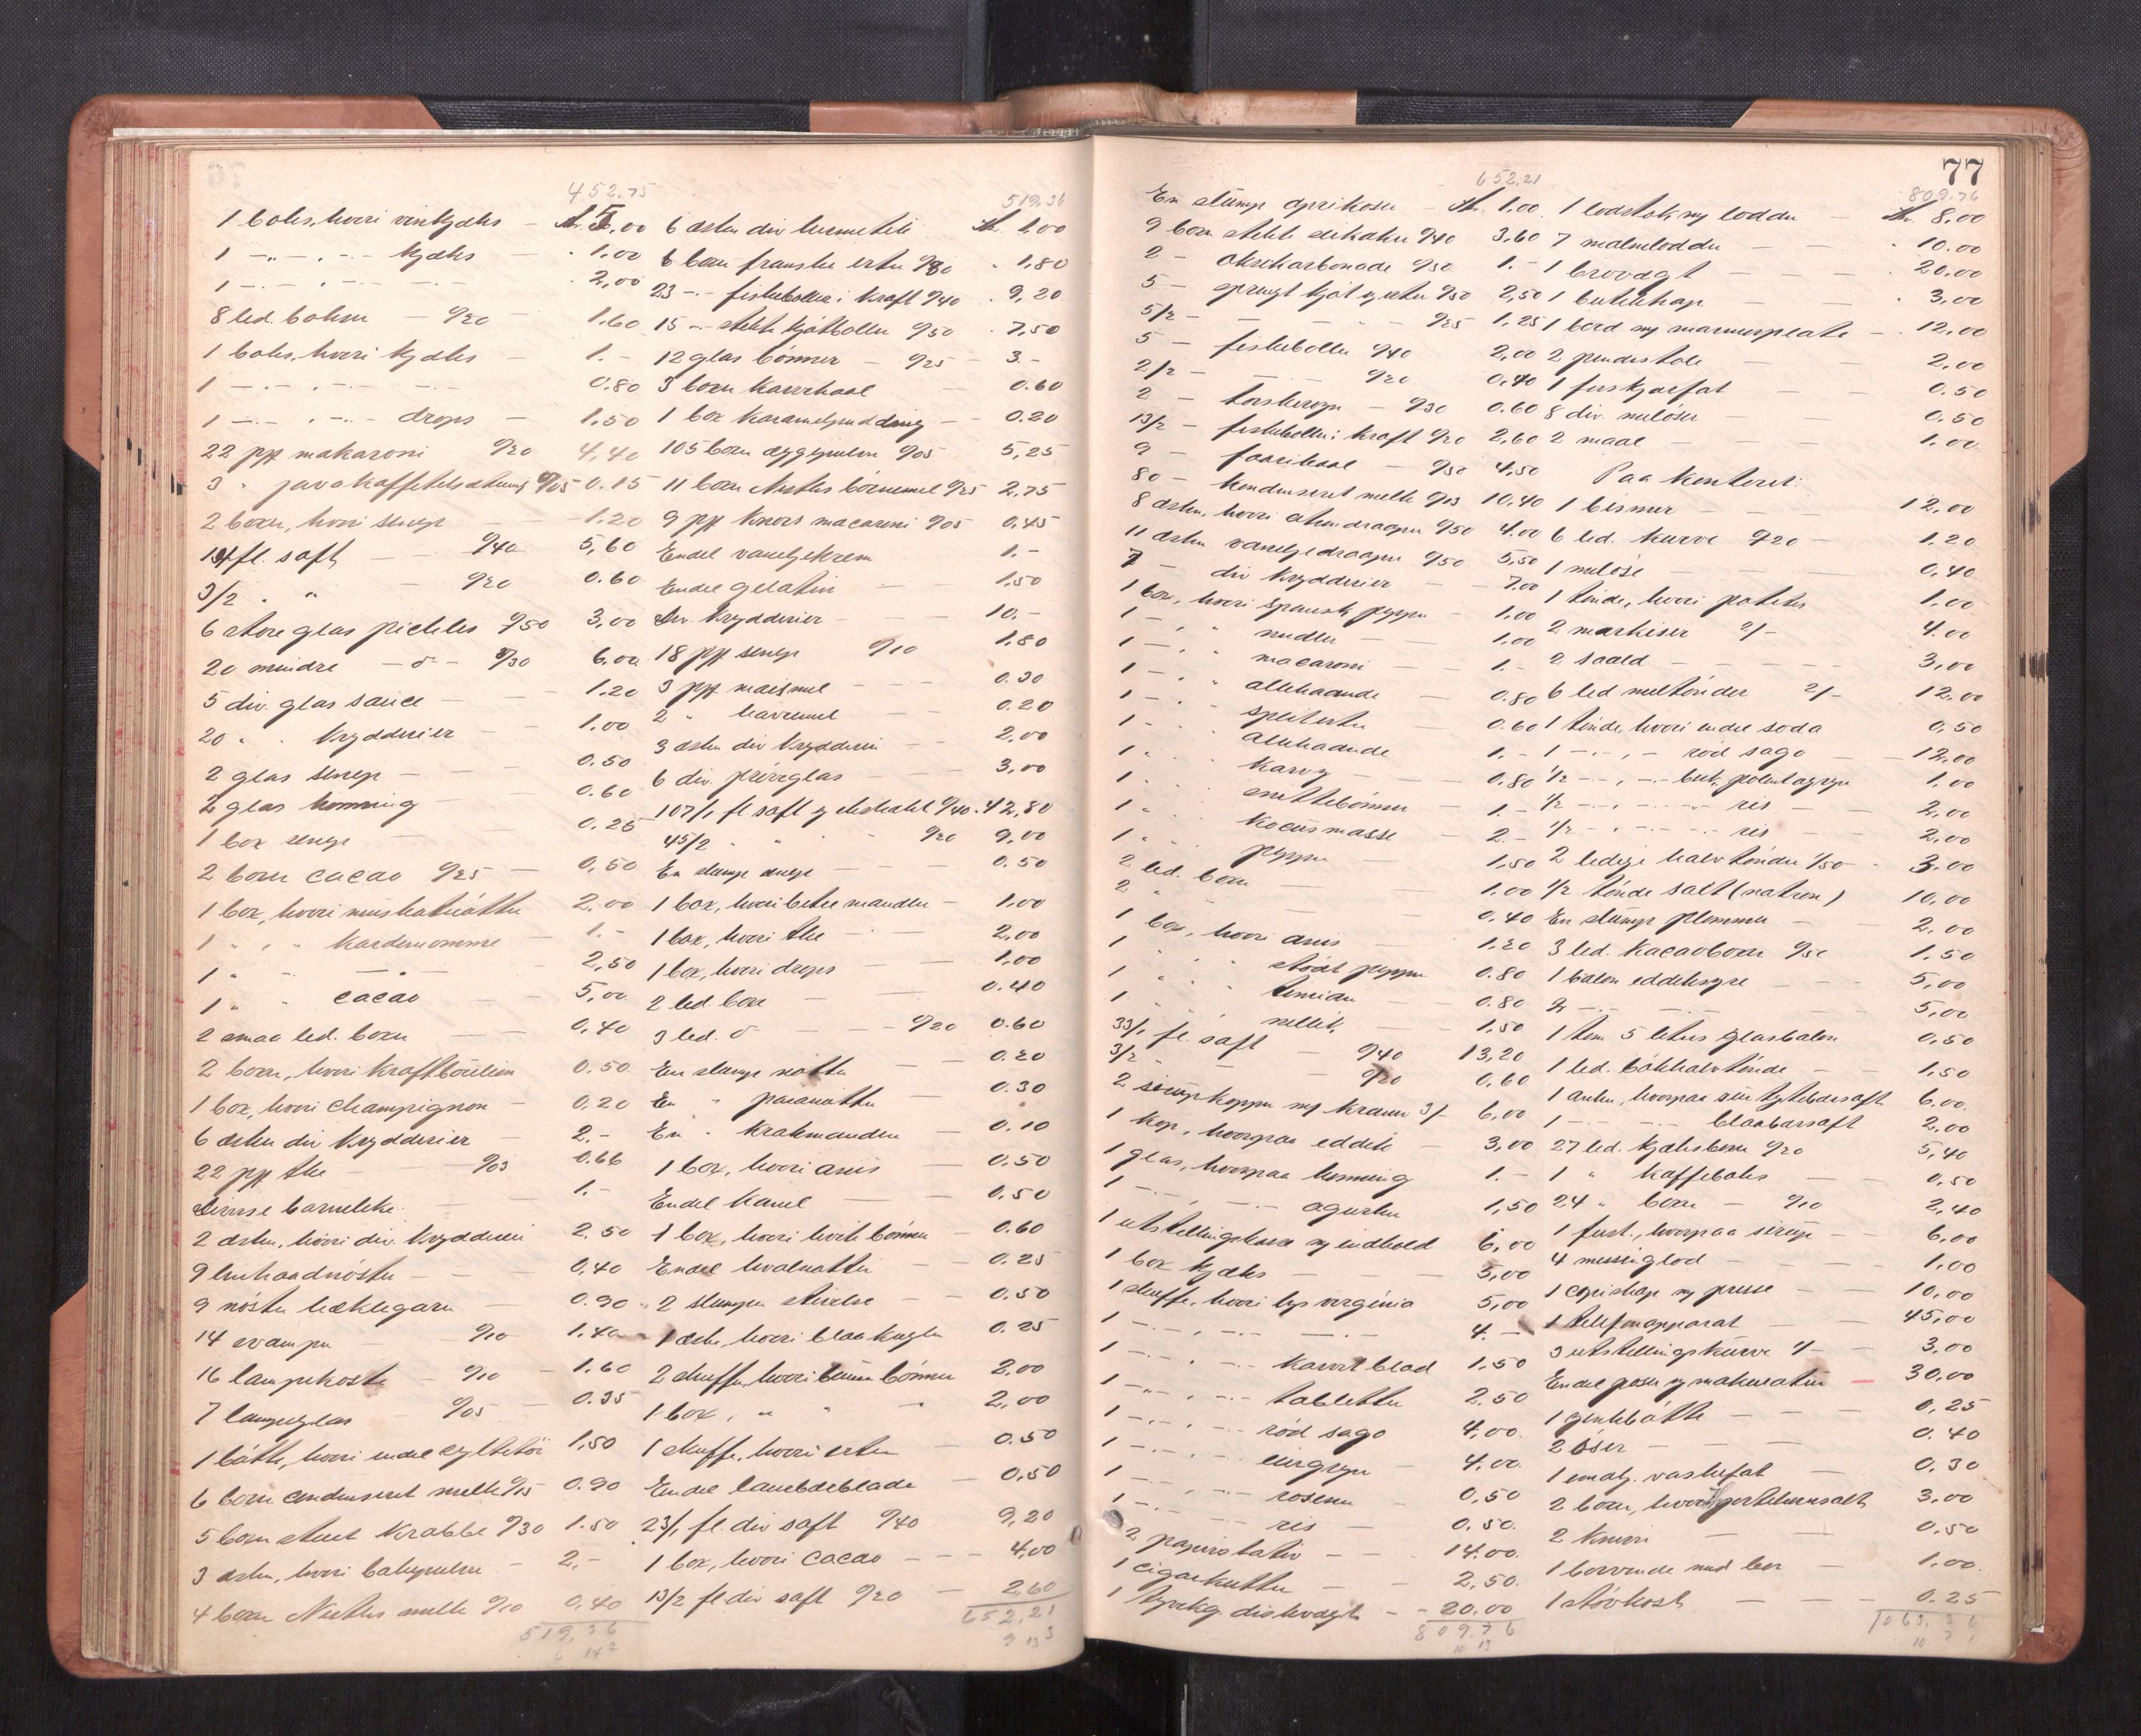 452.75
1 boks, hvori vinkjæks – kr. 5,00
1 –"– , –"– kjæks – 1,00
1 –"– , –"– –"– 2,00
8 led. bokser – 0/20 – 1.60
1 boks, hvori kjæks – 1.–
1 –"– , –"– –"– 0.80
1 –"– , –"– drops – 1,50
22 pk makaroni 0/20 4,40
3 " javakaffetilsætning 0/05 0.15
2 boxer, hvori senep – 1.20
14/1 fl. saft – 0/40 5,60
3/2 " " – 0/20 0.60
6 store glas pickles 0/50 3,00
20 mindre –d– 0/30 6,00
5 div. glas sauce – 1.20
20 " " krydderier – 1,00
2 glas senep – 0.50
2 glas honning – 0.60
1 box senep – 0.25
2 boxer cacao 0/25 – 0,50
1 box, hvori muskatnøtter 2,00
1 " , " kardemomme 1.–
1 " " –"– 2,50
1 " " cacao – 5,00
2 smaa led. boxer – 0,40
2 boxer, hvori kraftboulion 0.50
1 box, hvori champignon – 0,20
6 æsker div krydderier – 2.–
22 pk the – 0/03 0.66
Diverse barneleke – 1.–
2 æsker, hvori div. krydderier 2,50
9 nøster – 0,40
9 nøster hæklegarn – 0.90
14 svamper – 0/10 1.40
16 lampekoste – 0/10 – 1.60
7 lampeglas – 0/05 – 0.35
1 bøtte, hvori endel syltetøi 1,50
6 boxer condenseret melk 0/15 0.90
5 boxer krabbe 0/30 1.50
3 æsker, hvori bakepulver – 2,–
4 boxer Nestles melk 0/10 0,40
519,36
519,36
6 æsker div hermetik kr. 1,00
6 boxer franske erter 0/30 1,80
23 –"– fiskeboller i kraft 0/40 9,20
15 –"– stekte kjøtboller 0/50 7,50
12 glas bønner – 0/25 – 3.–
3 boxer karvekaal – 0.60
1 box karamelpudding – 0.20
105 boxer æggepulver 0/05 5,25
11 boxer Nestles børnemel 0/25 2,75
9 pk Knors macaroni 0/05 0,45
Endel vaneljekrem – 1.–
Endel gelatin – 1,50
Div. krydderier – 10.–
18 pk senep 0/10 1.80
3 pk maismel – 0.30
2 " havremel – 0.20
3 æsker div krydderier – 2,00
6 div. prøveglas – 3,00
107/1 fl saft og ekstrakt 0/40 42,80
45/2 " " " 0/20 9,00
En slump senep – 0.50
1 box, hvori bitre mandler – 1,00
1 box, hvori the – 2,00
1 box, hvori drops – 1,00
2 led boxe – 0.40
3 led. d – 0/20 0.60
En slump nøtter – 0.20
En " paranøtter – 0.30
En " krakmandler – 0.10
1 box, hvori anis 0.50
Endel kanel – 0.50
1 box, hvori hvite bønner – 0.60
Endel hvalnøtter – 0.25
2 slumper stivelse – 0.50
1 æske, hvori blaa kugler 0.25
2 skuffer, hvori brune bønner 2,00
1 box, " " " 2,00
1 skuffe, hvori erter – 0.50
Endel laurbærblade – 0,50
23/1 fl. div saft 0/40 9,20
1 box, hvori cacao – 4,00
13/2 fl div saft 0/20 – 2,60
652,21
77
652,21
En slump aprikoser – kr. 1,00
9 boxer 0/40 3,60
2 – Oksekarbonade 0/50 1.–
5 – sprengt kjøt og erter 0/50 2,50
5/2 – – " – 0/25 1,25
5 – fiskeboller 0/40 2,00
2/2 – – 0/20 0,40
2 – torskerogn – 0/30 0.60
13/2 – fiskeboller i kraft 0/20 2,60
9 – faarikaal – 0/50 4,50
80 – kondenseret melk 0/13 10,40
8 æsker, hvori 0/50 4.00
11 æsker vaneljedraaper 0/50 5,50
7 – div krydderier – 7,00
1 box, hvori spansk pepper – 1,00
1 – , " nudler – 1.00
1 – , " macaroni – 1.–
1 – , " allehaande – 0.80
1 – , " spliterter 0.60
1 " " allehaande 1.–
1 " karve – 0,80
1 " snittebønner – 1.–
1 " kocusmasse – 2.–
1 " pepper – 1,50
2 led. boxer – 1.00
2 " – 0,40
1 box, hvori anis – 1.20
1 " " stødt pepper 0.80
1 " " timian 0.80
1 " " nellik – 1.50
33/1 fl. saft – 0/40 13,20
3/2 – – 0/20 0,60
2 sirupkopper m kraner 3/– 6,00
1 kop, hvorpaa eddik – 3,00
1 glas, hvorpaa honning 1.–
1 –"– –"– agurker 1,50
1 utstillingskasse m indhold 6,00
1 box kjæks – 3,00
1 skuffe, hvori lys virginia 5,00
1 –"– , –"– –"– 4.–
1 –"– , –"– karvet blad 1,50
1 –"– , –"– tabletter 2,50
1 –"– , –"– rød sago 4,00
1 –"– , –"– 4.00
1 –"– , –"– rosener 0,50
1 –"– , –"– ris – 0.50
2 papirstativ – 14.00
1 cigarkutter – 2,50
1 tyrkg. diskvægt – 20,00
809,76
809,76
1 lodstok m lodder – kr. 8,00
7 malmlodder – 10.00
1 brovægt – 20.00
1 – 3,00
1 bord m marmorplate – 12,00
2 pindestole – 2,00
1 ferskjærfat – 0.50
8 div. meløser – 0,50
2 maal – 1.00
Paa Kontoret:
1 bismer – 12,00
6 led. kurve 0/20 – 1.20
1 meløse – 0,40
1 tønde, hvori poteter 1,00
2 markiser 2/– 4.00
2 saald – 3,00
6 led meltønder 2/– 12.00
1 tønde, hvori endel soda 0,50
1 –"– , – rød sago – 12,00
1/2 –"– , –"– 1.00
1/2 –"– , –"– ris – 2,00
1/2 –"– , –"– ris – 2,00
2 ledige halvtønder 1/50 3,00
1/2 tønde salt (natron) 10,00
En slump plommer – 2,00
3 led. Kacaoboxer 0/50 1.50
1 balon eddiksyre – 5,00
2 –"– –"– 5,00
1 tom 5 liters glasbalon 0,50
1 led. bøkkalvtønde – 1,50
1 anker, hvorpaa tytebærsaft 6.00
1 –"– –"– blaabærsaft 2,00
27 led. kjæksboxer 0/20 5,40
1 " kaffeboks – 0,50
24 " boxer – 0/10 2,40
1 fust., hvorpaa sirup – 6,00
4 messinglod – 1.00
1 copiskap m presse – 10,00
1 telefonapparat – 45,00
3 utstillingskurve 1/– 3,00
Endel poser og makulatur – 30,00
1 zinkbøtte – 0,25
2 øser – 0.40
1 emalj. vaskefat – 0,30
2 boxer, hvori 3,00
2 kniver – 0,50
1 borvinde med bor – 1,00
1 støvkost – 0.25
1063,36